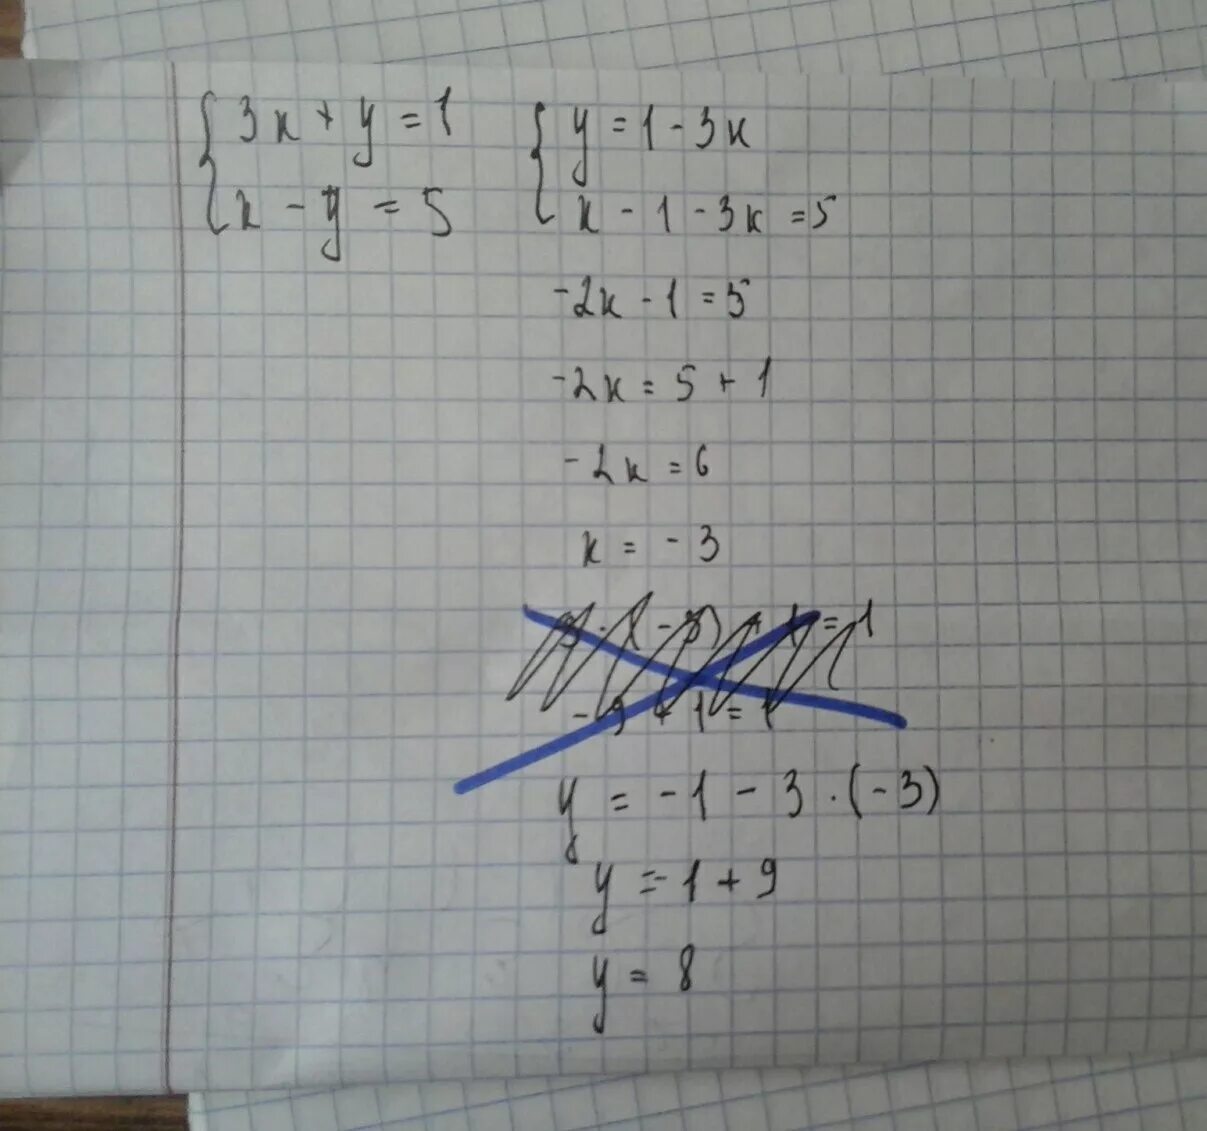 3x + y = 1
x - y = 5
y = 1 - 3x
x - 1 - 3x = 5
-2x - 1 = 5
-2x = 5 + 1
-2x = 6
x = -3
= 1
- 9 + 1 = 1
y = -1 - 3 · (-3)
y = -1 + 9
y = 8